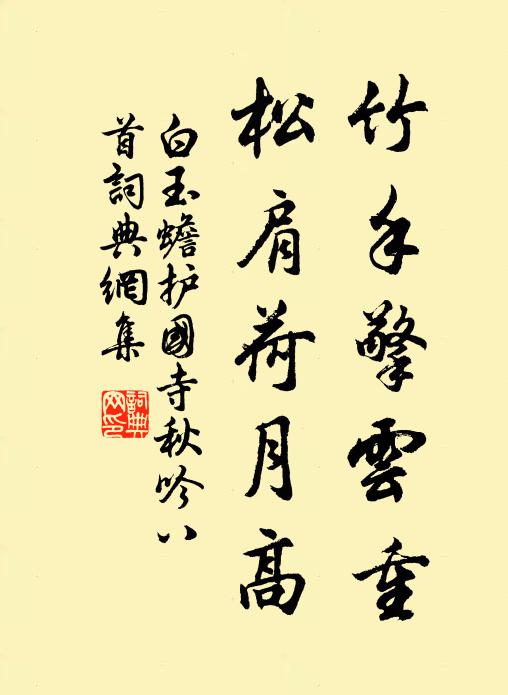 竹手擎雲重
松肩荷月高
白玉蟾护國寺秋吟八
首詞典網集
詞典
网印